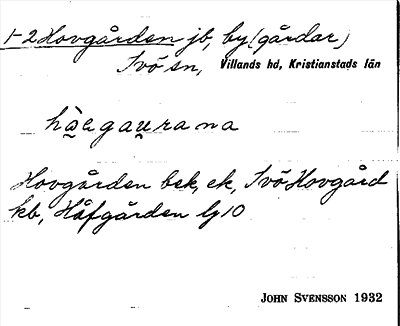 1-2 Hovgården jb, by (gårdar)
Ivö sn, Villands hd, Kristianstads län
hàegau̯rana
Hovgården bek, ek, Ivö Hovgård
kb, Håfgården lj 10
JOHN SVENSSON 1932